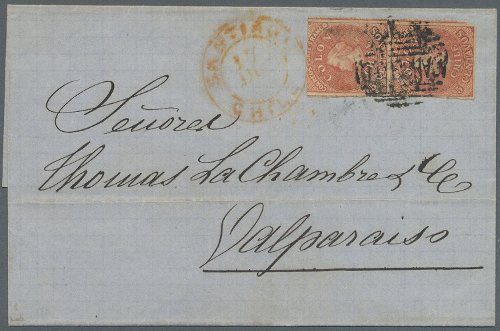 SANTIAGO
CHILE
COLON
Señores
Thomas La Chambre & Ce
Valparaiso